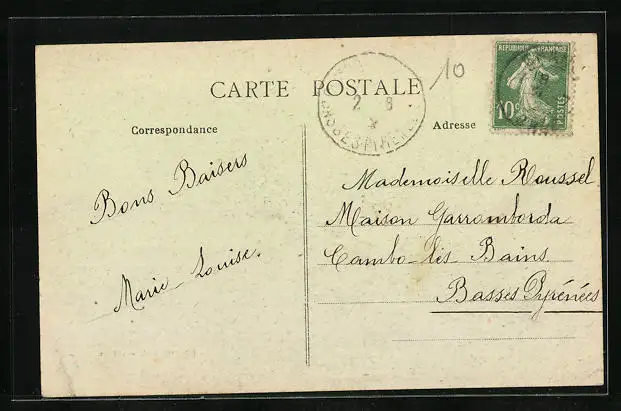 CARTE POSTALE
10
RÉPUBLIQUE FRANÇAISE
10c
POSTES
2 - 8
BASSES PYRENEES
Correspondance
Adresse
Bons Baisers
Marie-Louise.
Mademoiselle Roussel
Maison Garromborda
Cambo-les Bains
Basses Pyrénées